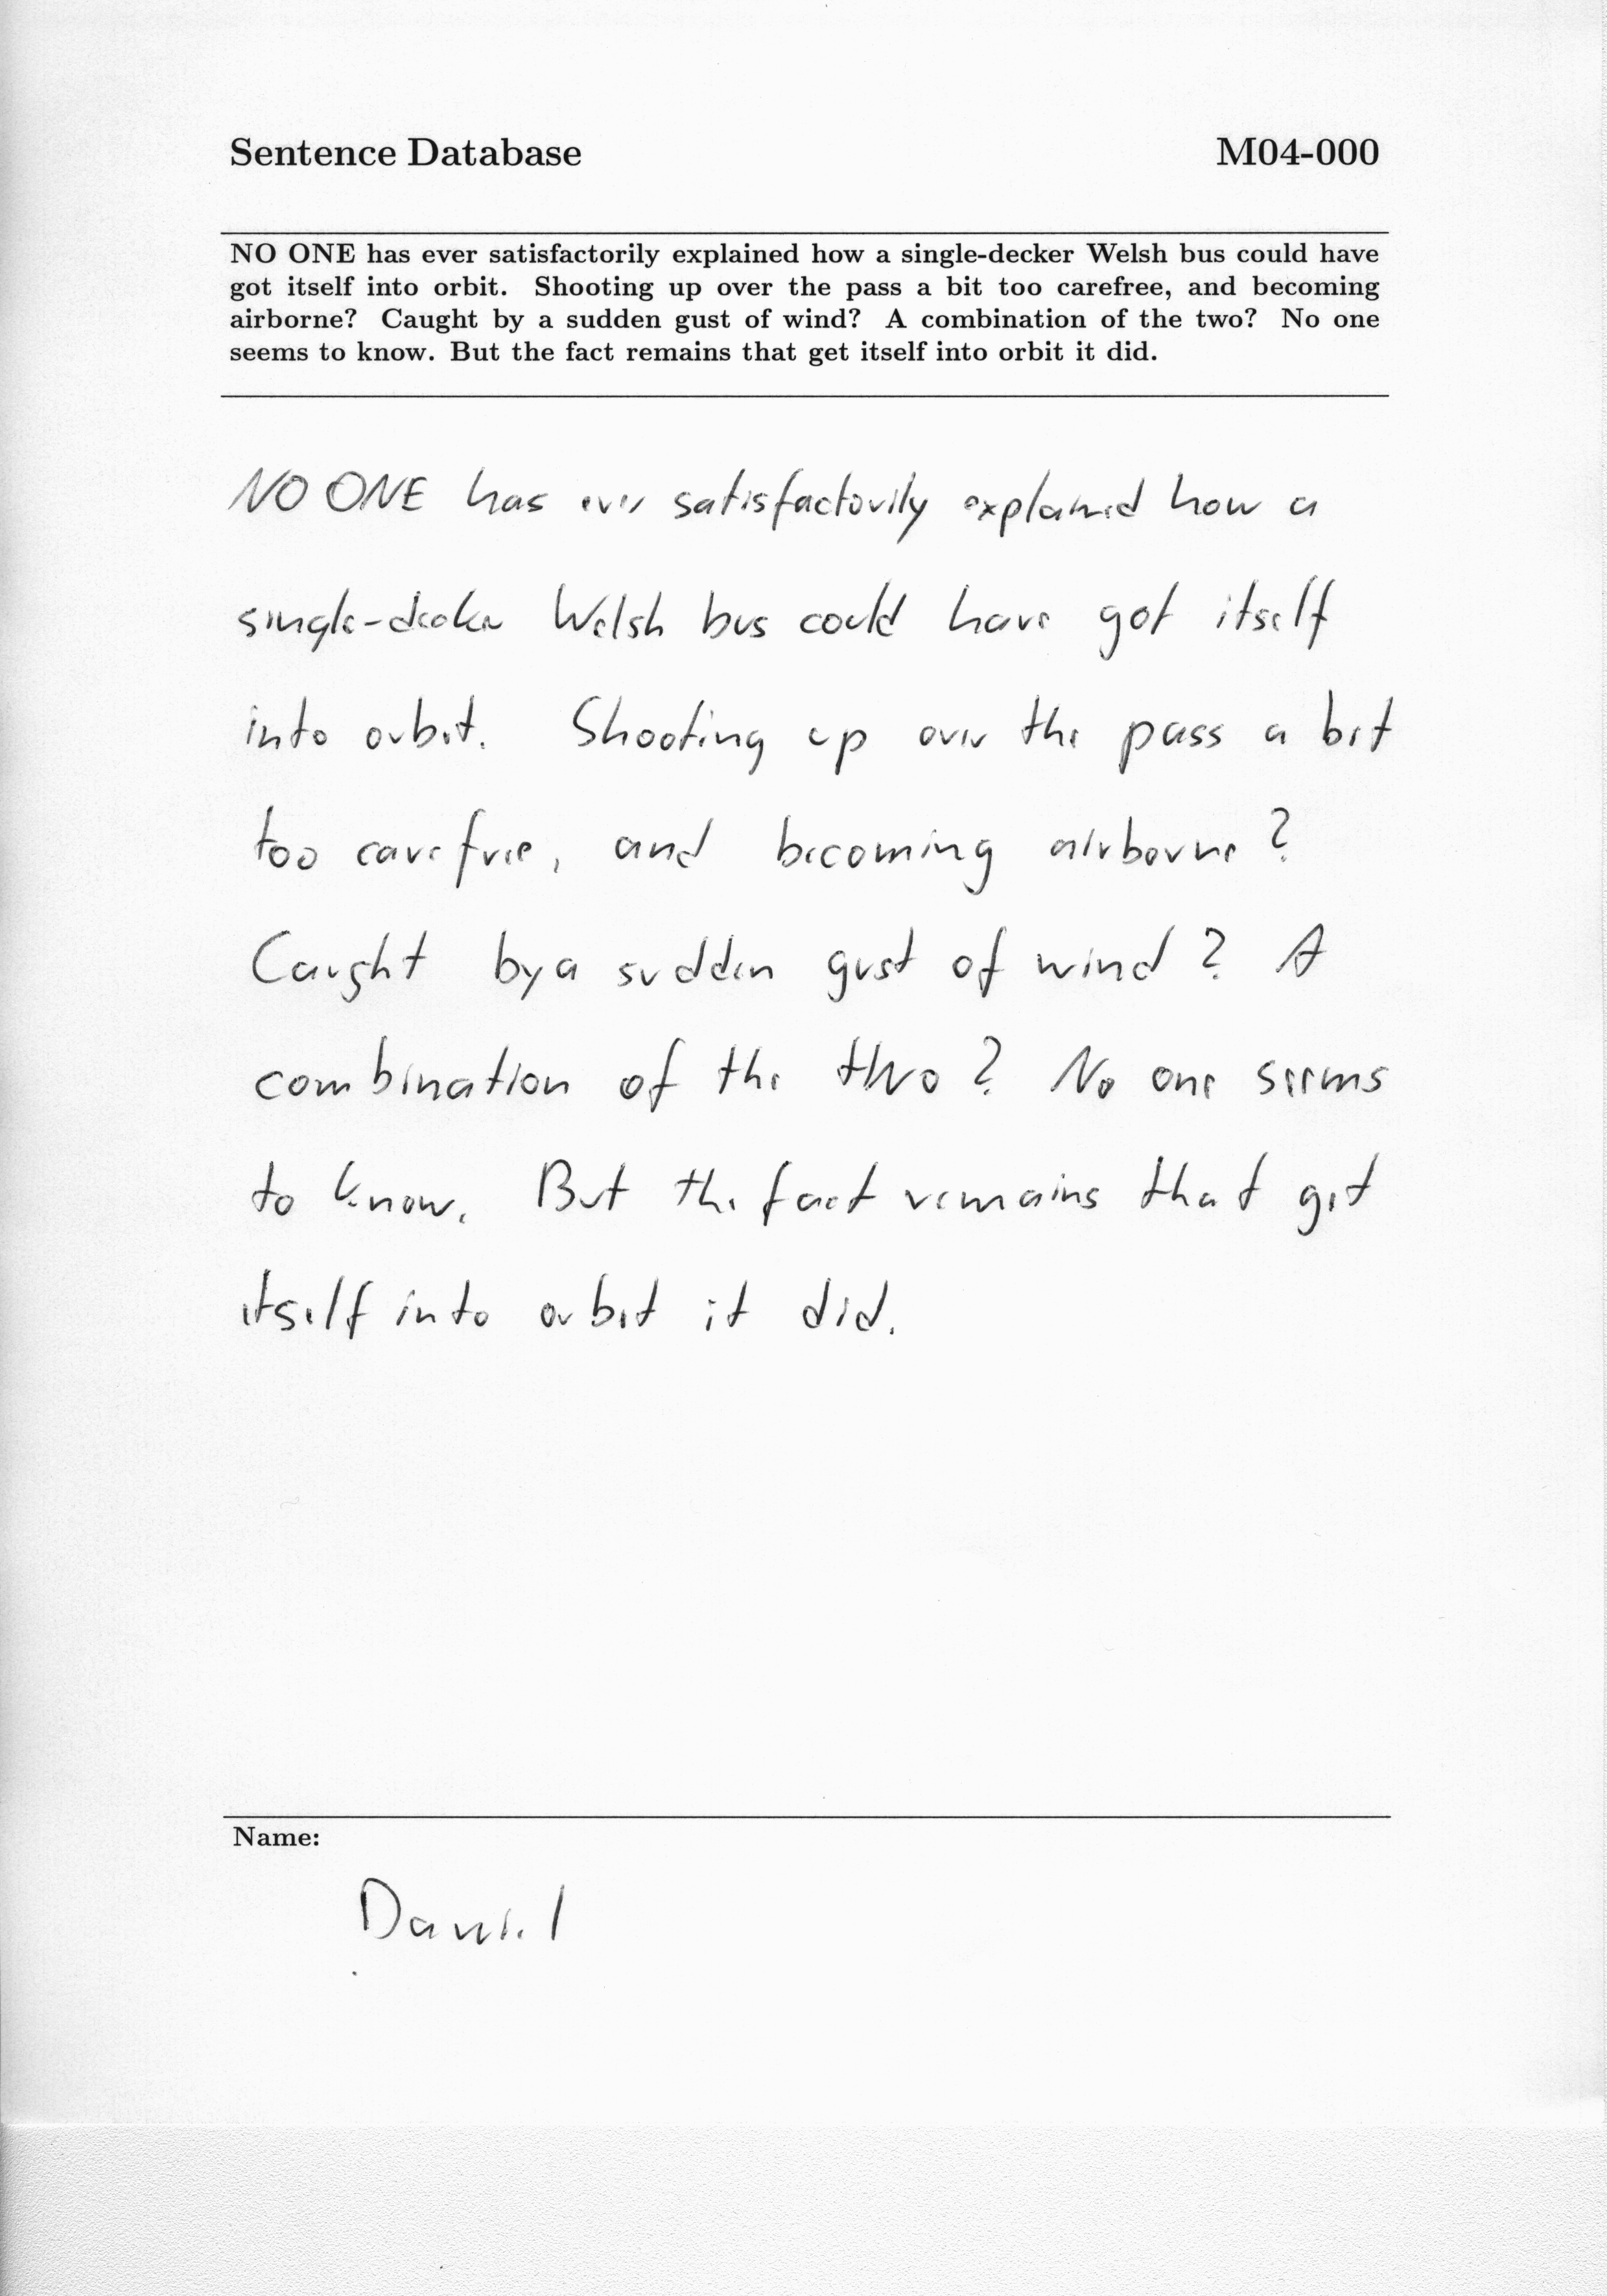 Sentence Database M04-000
NO ONE has ever satisfactorily explained how a single-decker Welsh bus could have
got itself into orbit. Shooting up over the pass a bit too carefree, and becoming
airborne? Caught by a sudden gust of wind? A combination of the two? No one
seems to know. But the fact remains that get itself into orbit it did.
NO ONE has ever satisfactorily explained how a
single-decker Welsh bus could have got itself
into orbit. Shooting up over the pass a bit
too carefree, and becoming airborne?
Caught by a sudden gust of wind? A
combination of the two? No one seems
to know. But the fact remains that get
itself into orbit it did.
Name:
Daniel